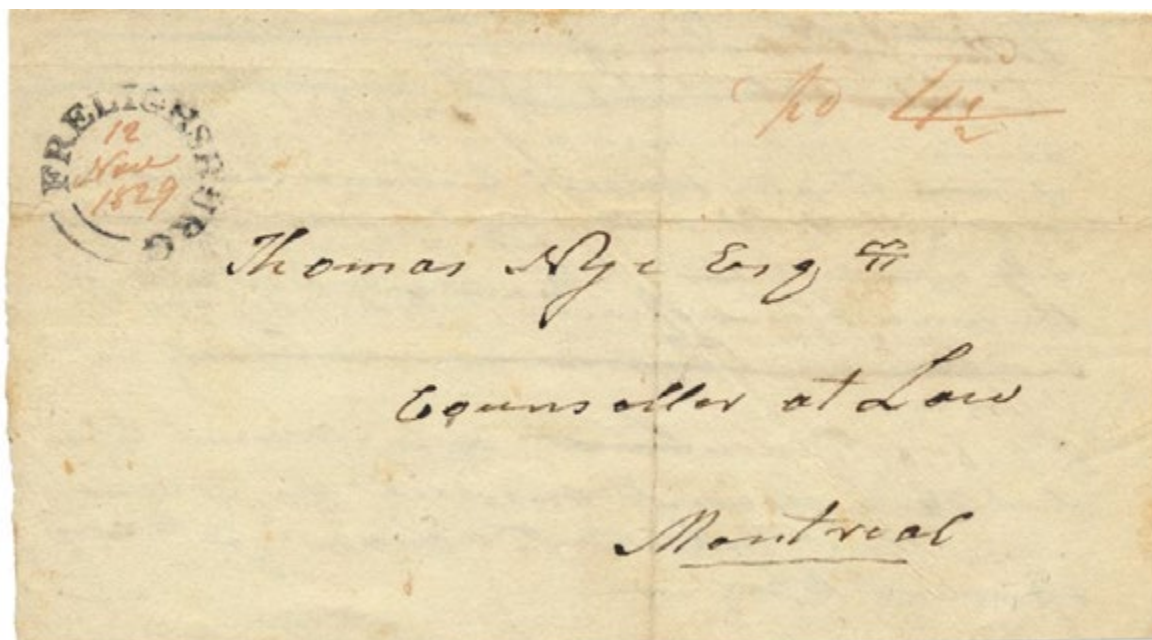 FRELIGHSBURG
12
Nov
1829
4½
Thomas Nye Esqr
Counseller at Law
Montreal